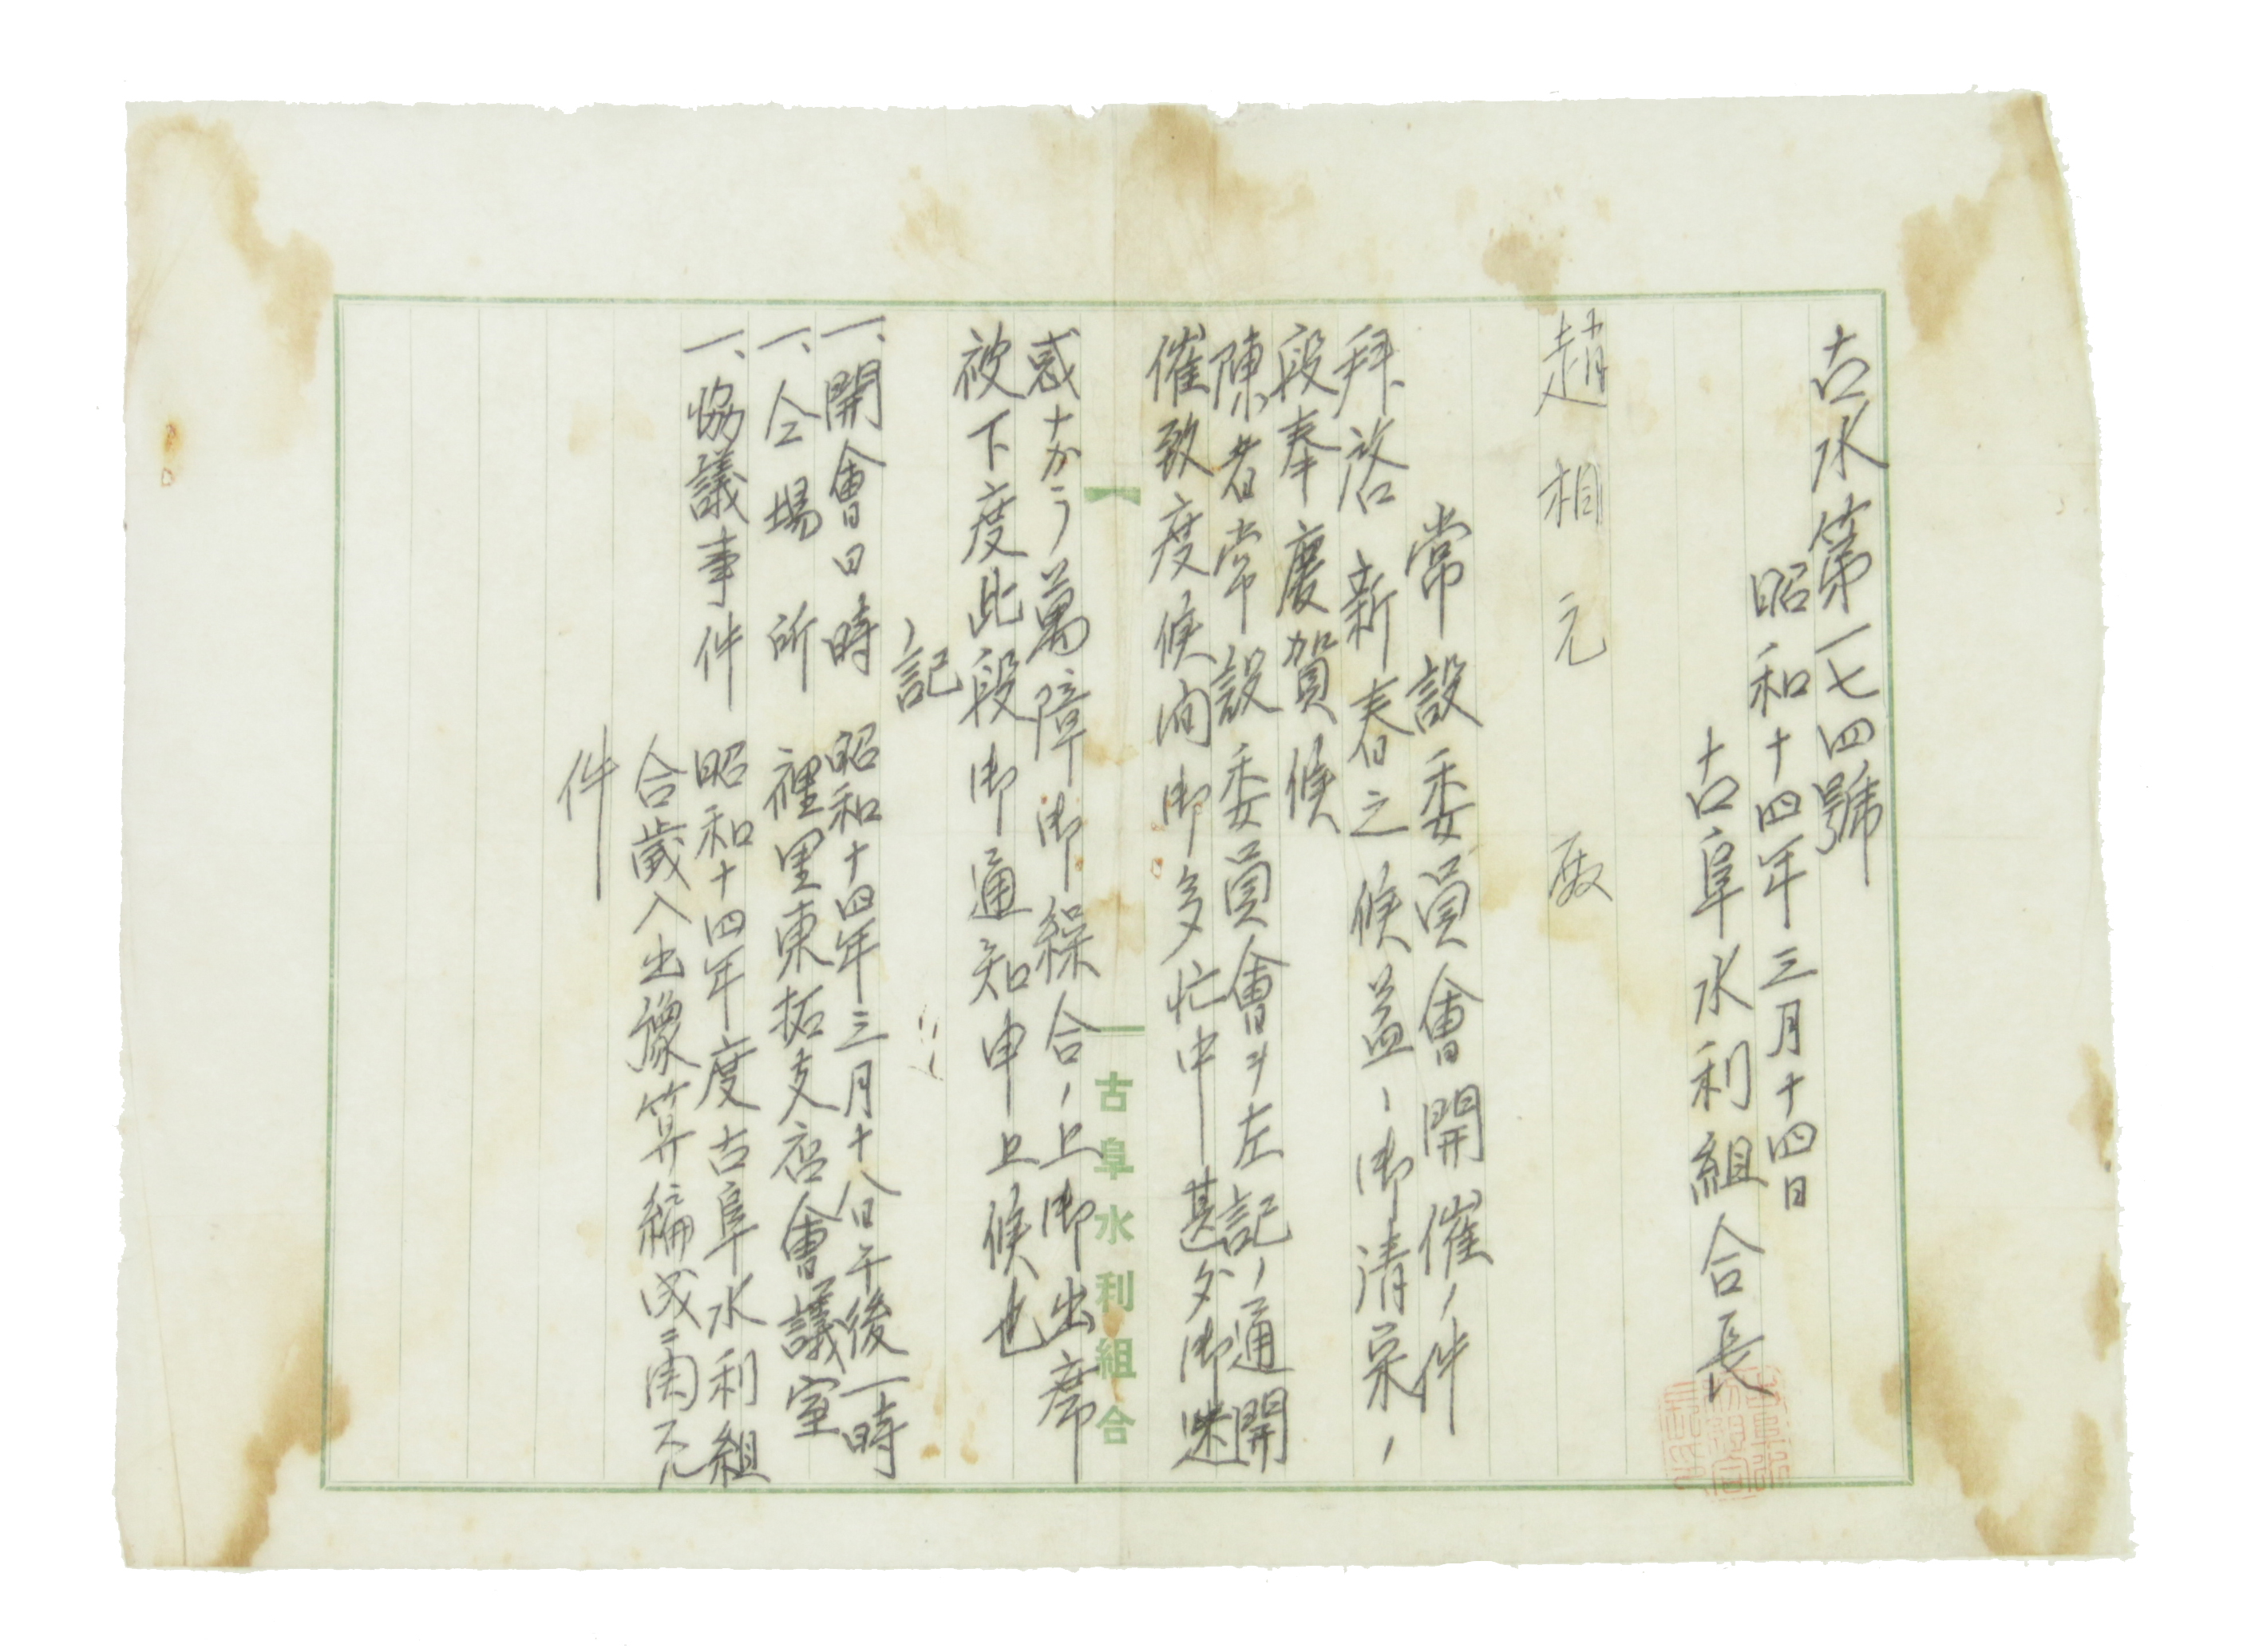 古水第一七四號
昭和十四年三月十四日
古阜水利組合長
趙相元殿
常設委員會開催ノ件
拜啓 新春之候益ヽ御清栄ノ
段奉慶賀候
陳者常設委員會ヲ左記ノ通開
催致度候間御多忙中甚タ御迷
惑ナカラ萬障御繰合ノ上御出席
被下度此段御通知申上候也
記
一、開會日時 昭和十四年三月十八日午後一時
一、仝場所 裡里東拓支店會議室
一、協議事件 昭和十四年度古阜水利組
合歲入出豫算編成ニ関スル
件
古阜水利組合